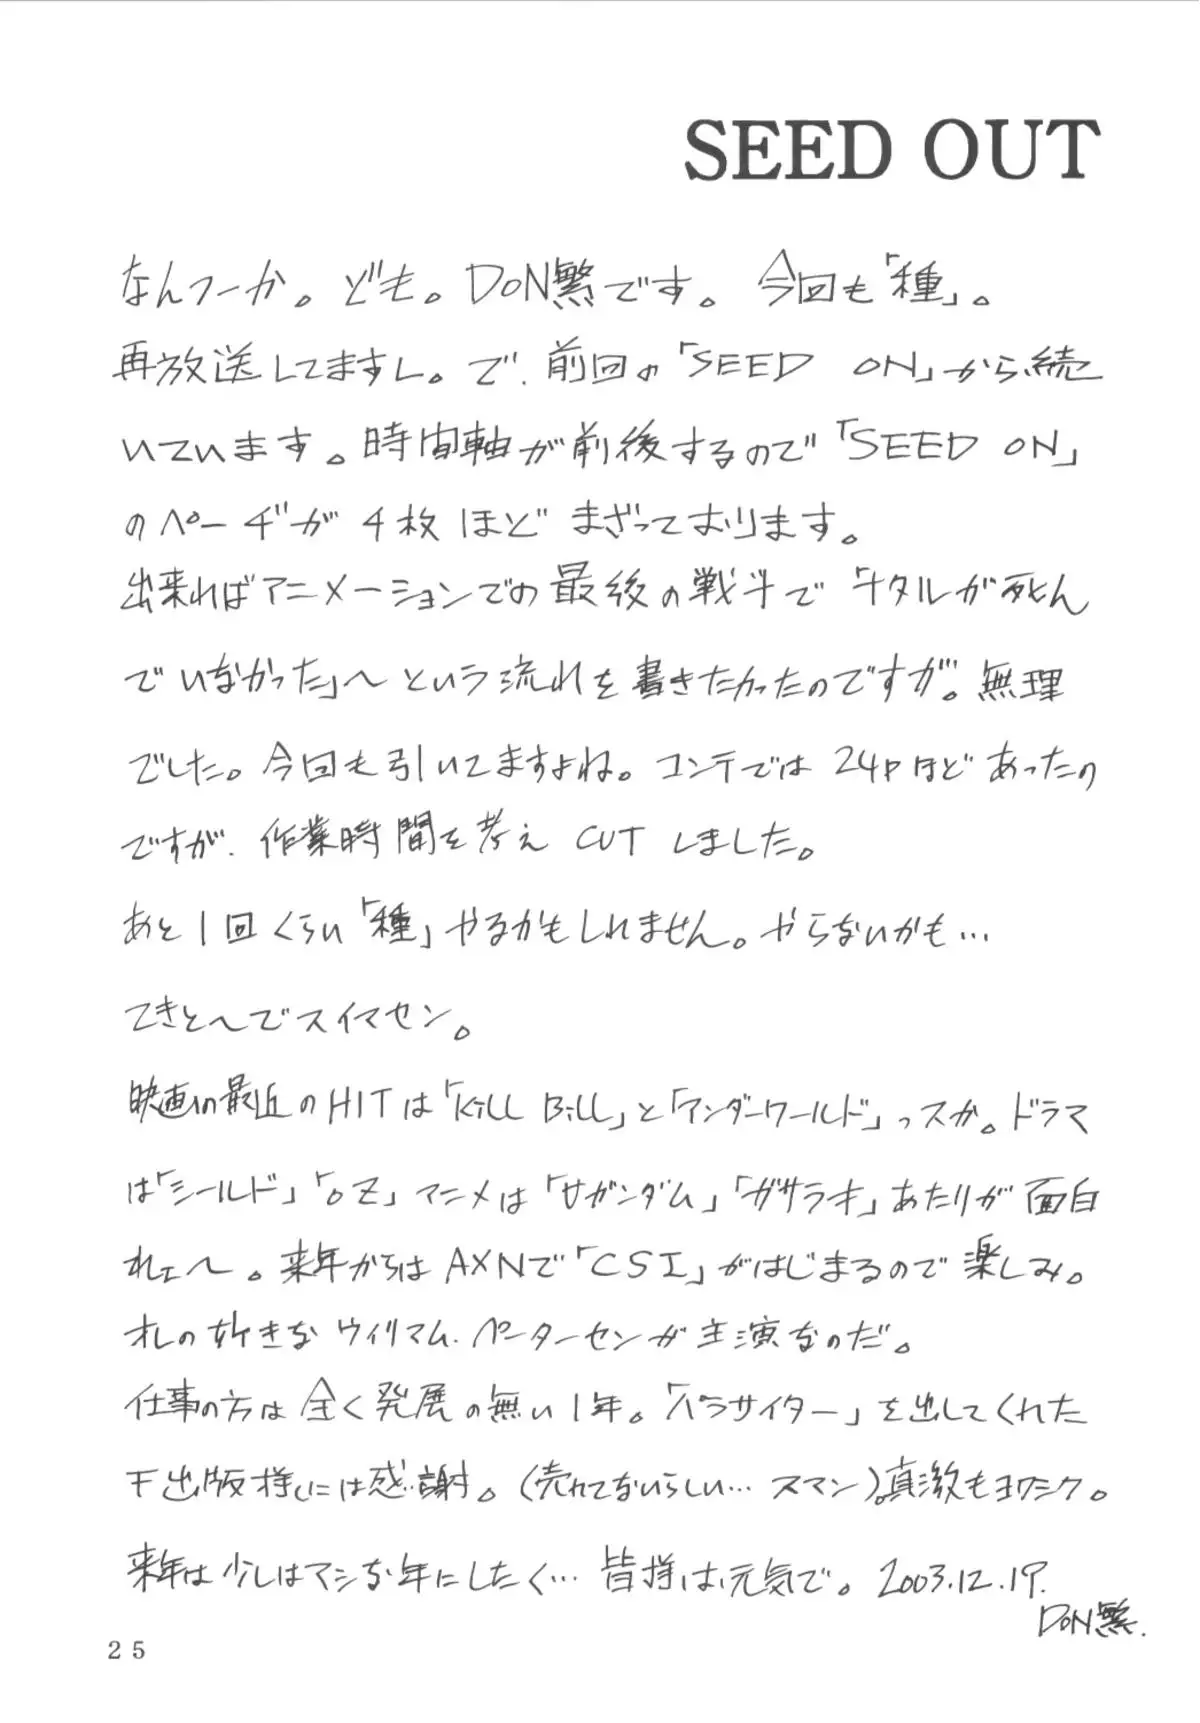 SEED OUT
なんつーか。ども。DoN繁です。 今回も「種」。
再放送してますし。で、前回の「SEED ON」から続
いています。時間軸が前後するので「SEED ON」
のページが4枚ほどまざっております。
出来ればアニメーションでの最後の戦斗で「キタルが死ん
でいなかった」〜という流れを書きたかったのですが。無理
でした。今回も引いてますよね。コンテでは24Pほどあったの
ですが、作業時間を考えCUTしました。
あと1回くらい「種」やるかもしれません。やらないかも…
てきと〜でスイマセン。
映画の最近のHITは「Kill Bill」と「アンダーワールド」っスか。ドラマ
は「シールド」「OZ」アニメは「∀ガンダム」「ガサラキ」あたりが面白
れェ〜。来年からはAXNで「CSI」がはじまるので楽しみ。
オレの好きなウィリアム・ペーターセンが主演なのだ。
仕事の方は全く発展の無い1年。「パラサイター」を出してくれた
出版様には感謝。(売れてないらしい… スマン)。真激もヨロシク。
来年は少しはマシな年にしたく… 皆様は元気で。2003.12.19.
DoN繁.
25